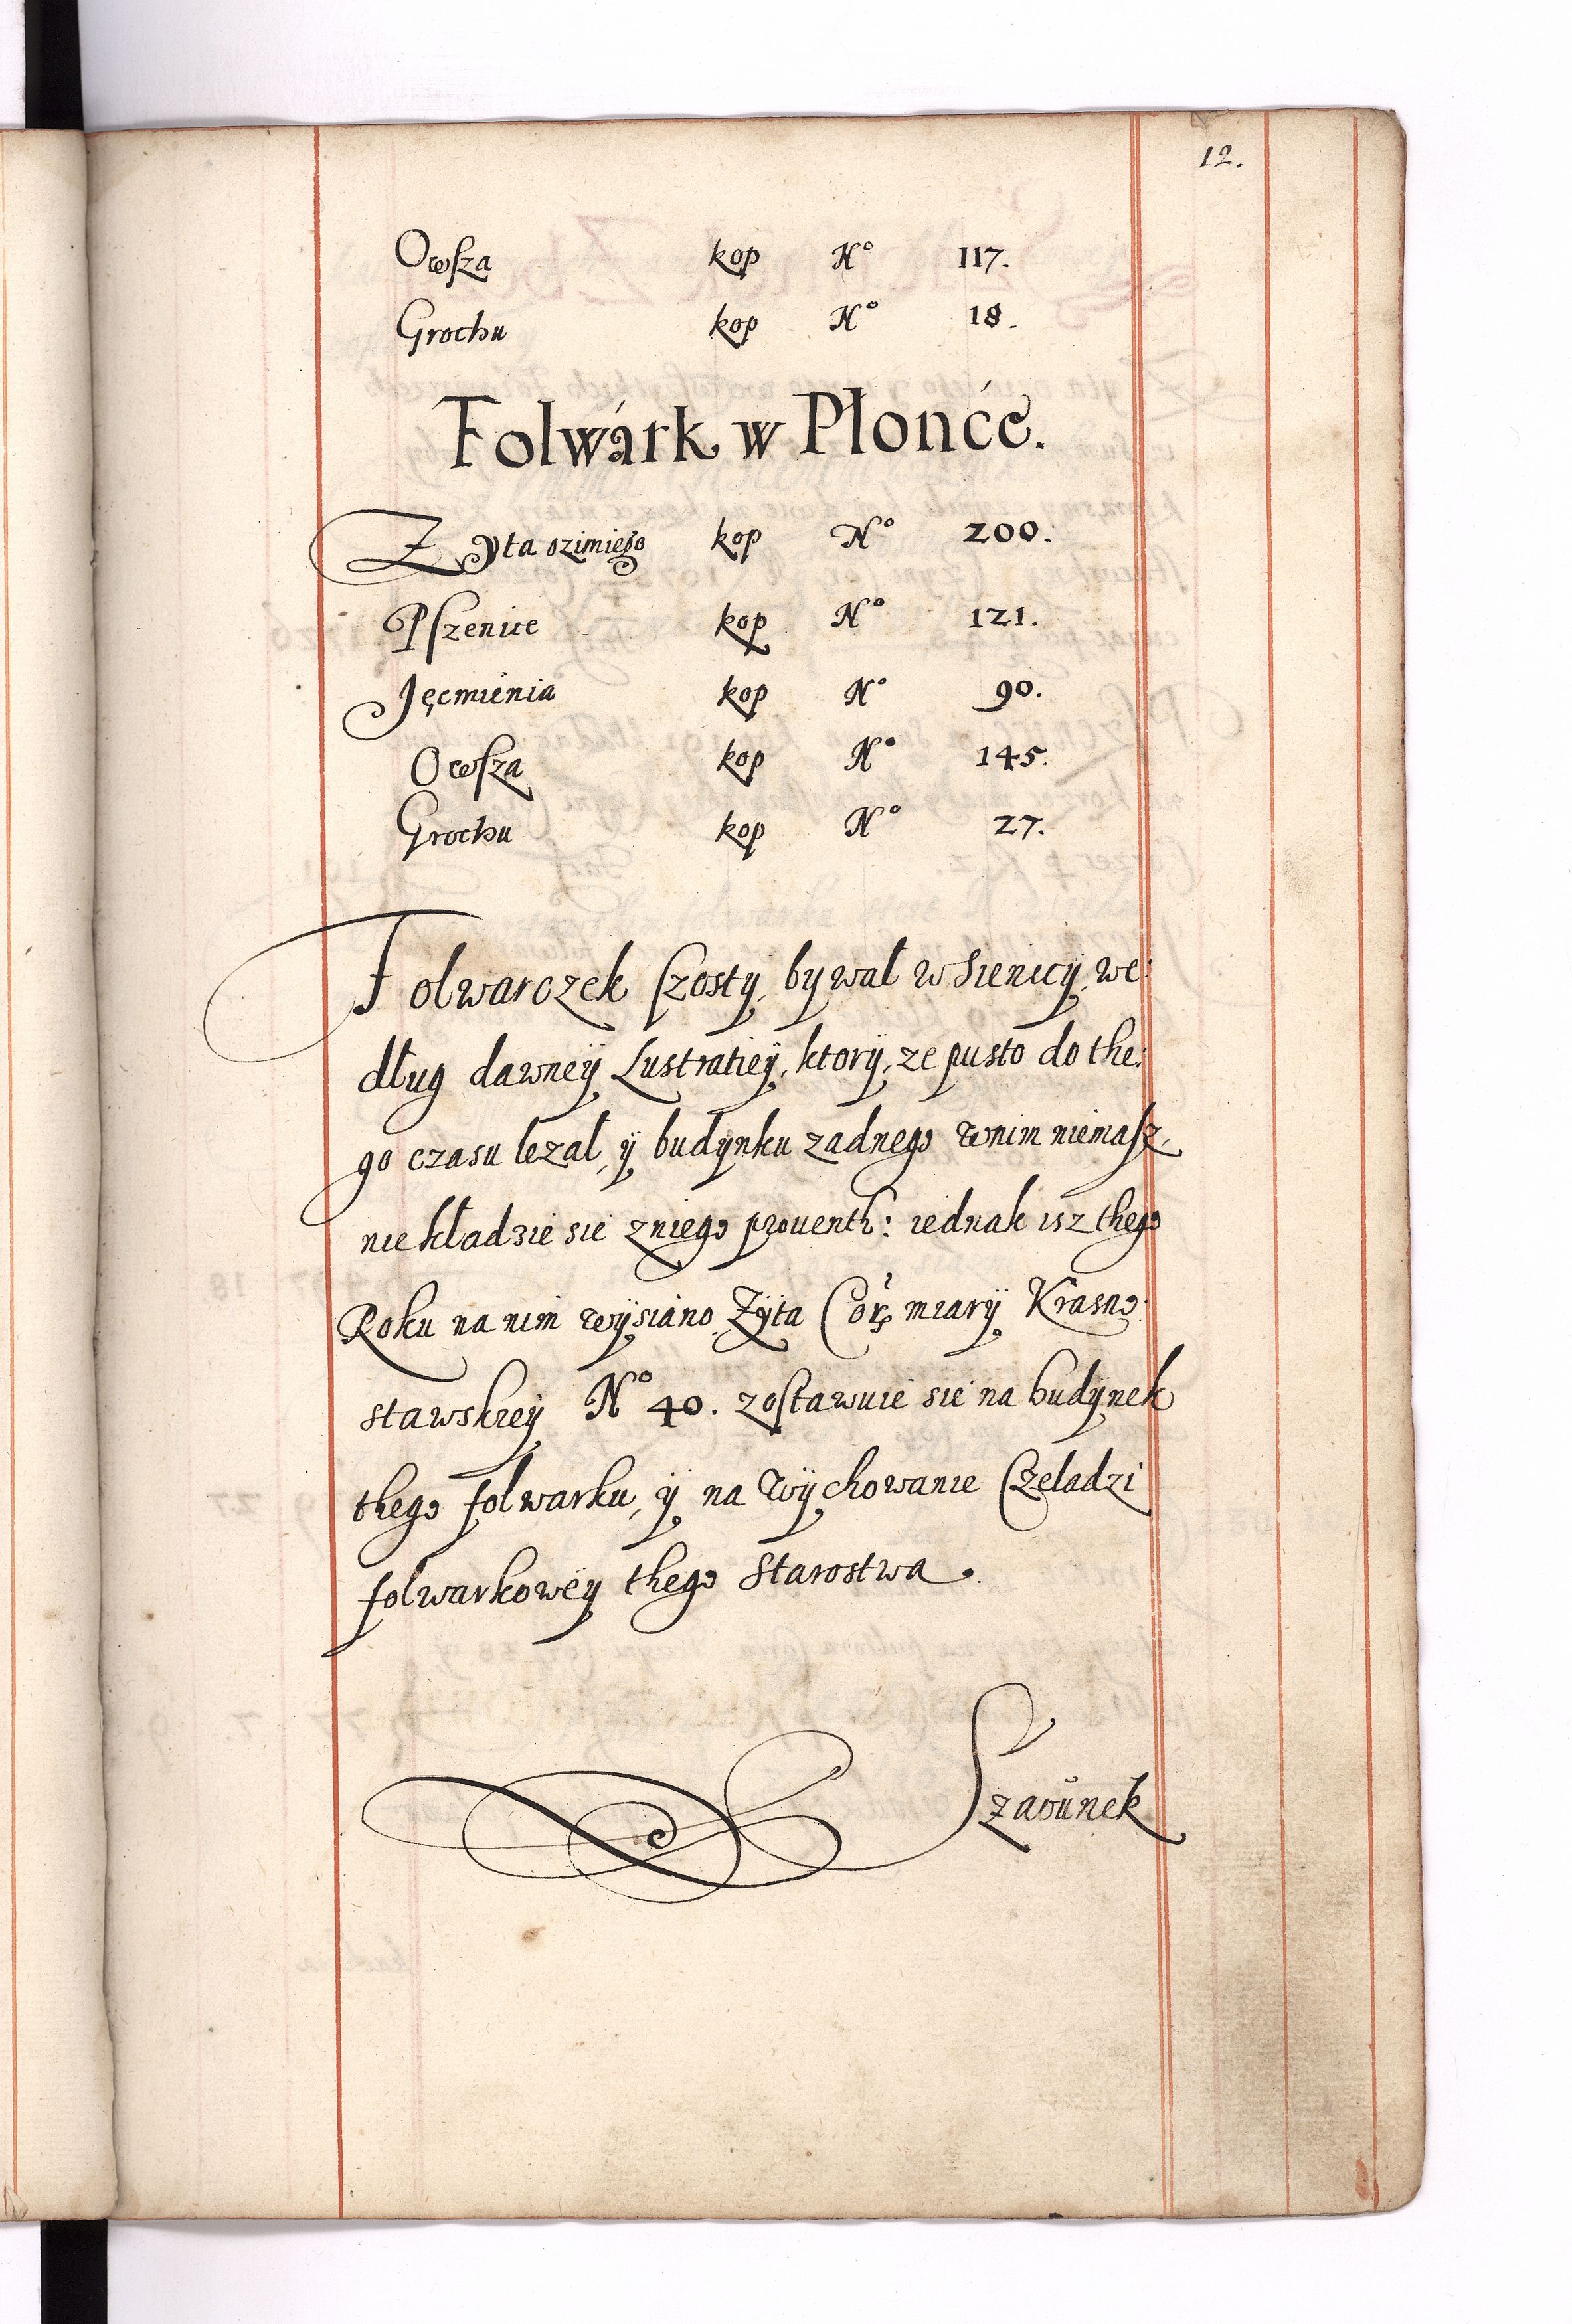 12.
Owsza kop No 117.
Grochu kop No 18.
Folwárk w Płonće.
Zyta ozimiego kop No 200.
Pszenice kop No 121.
Jęcmienia kop No 90.
Owsza kop No 145.
Grochu kop No 27.
Folwarczek szosty, bywał w Sienicy, we:
dług dawney Lustratiey, ktory, ze pusto do the:
go czasu lezał, y budynku zadnego wnim niemasz,
nie kładzie sie zniego prouenth: iednak isz thego
Roku na nim wysiano Zyta Cor miary Krasno:
stawskiey No 40. zostawuie sie na budynek
thego folwarku, y na wychowanie Czeladzi
folwarkowey thego Starostwa.
Szacunek